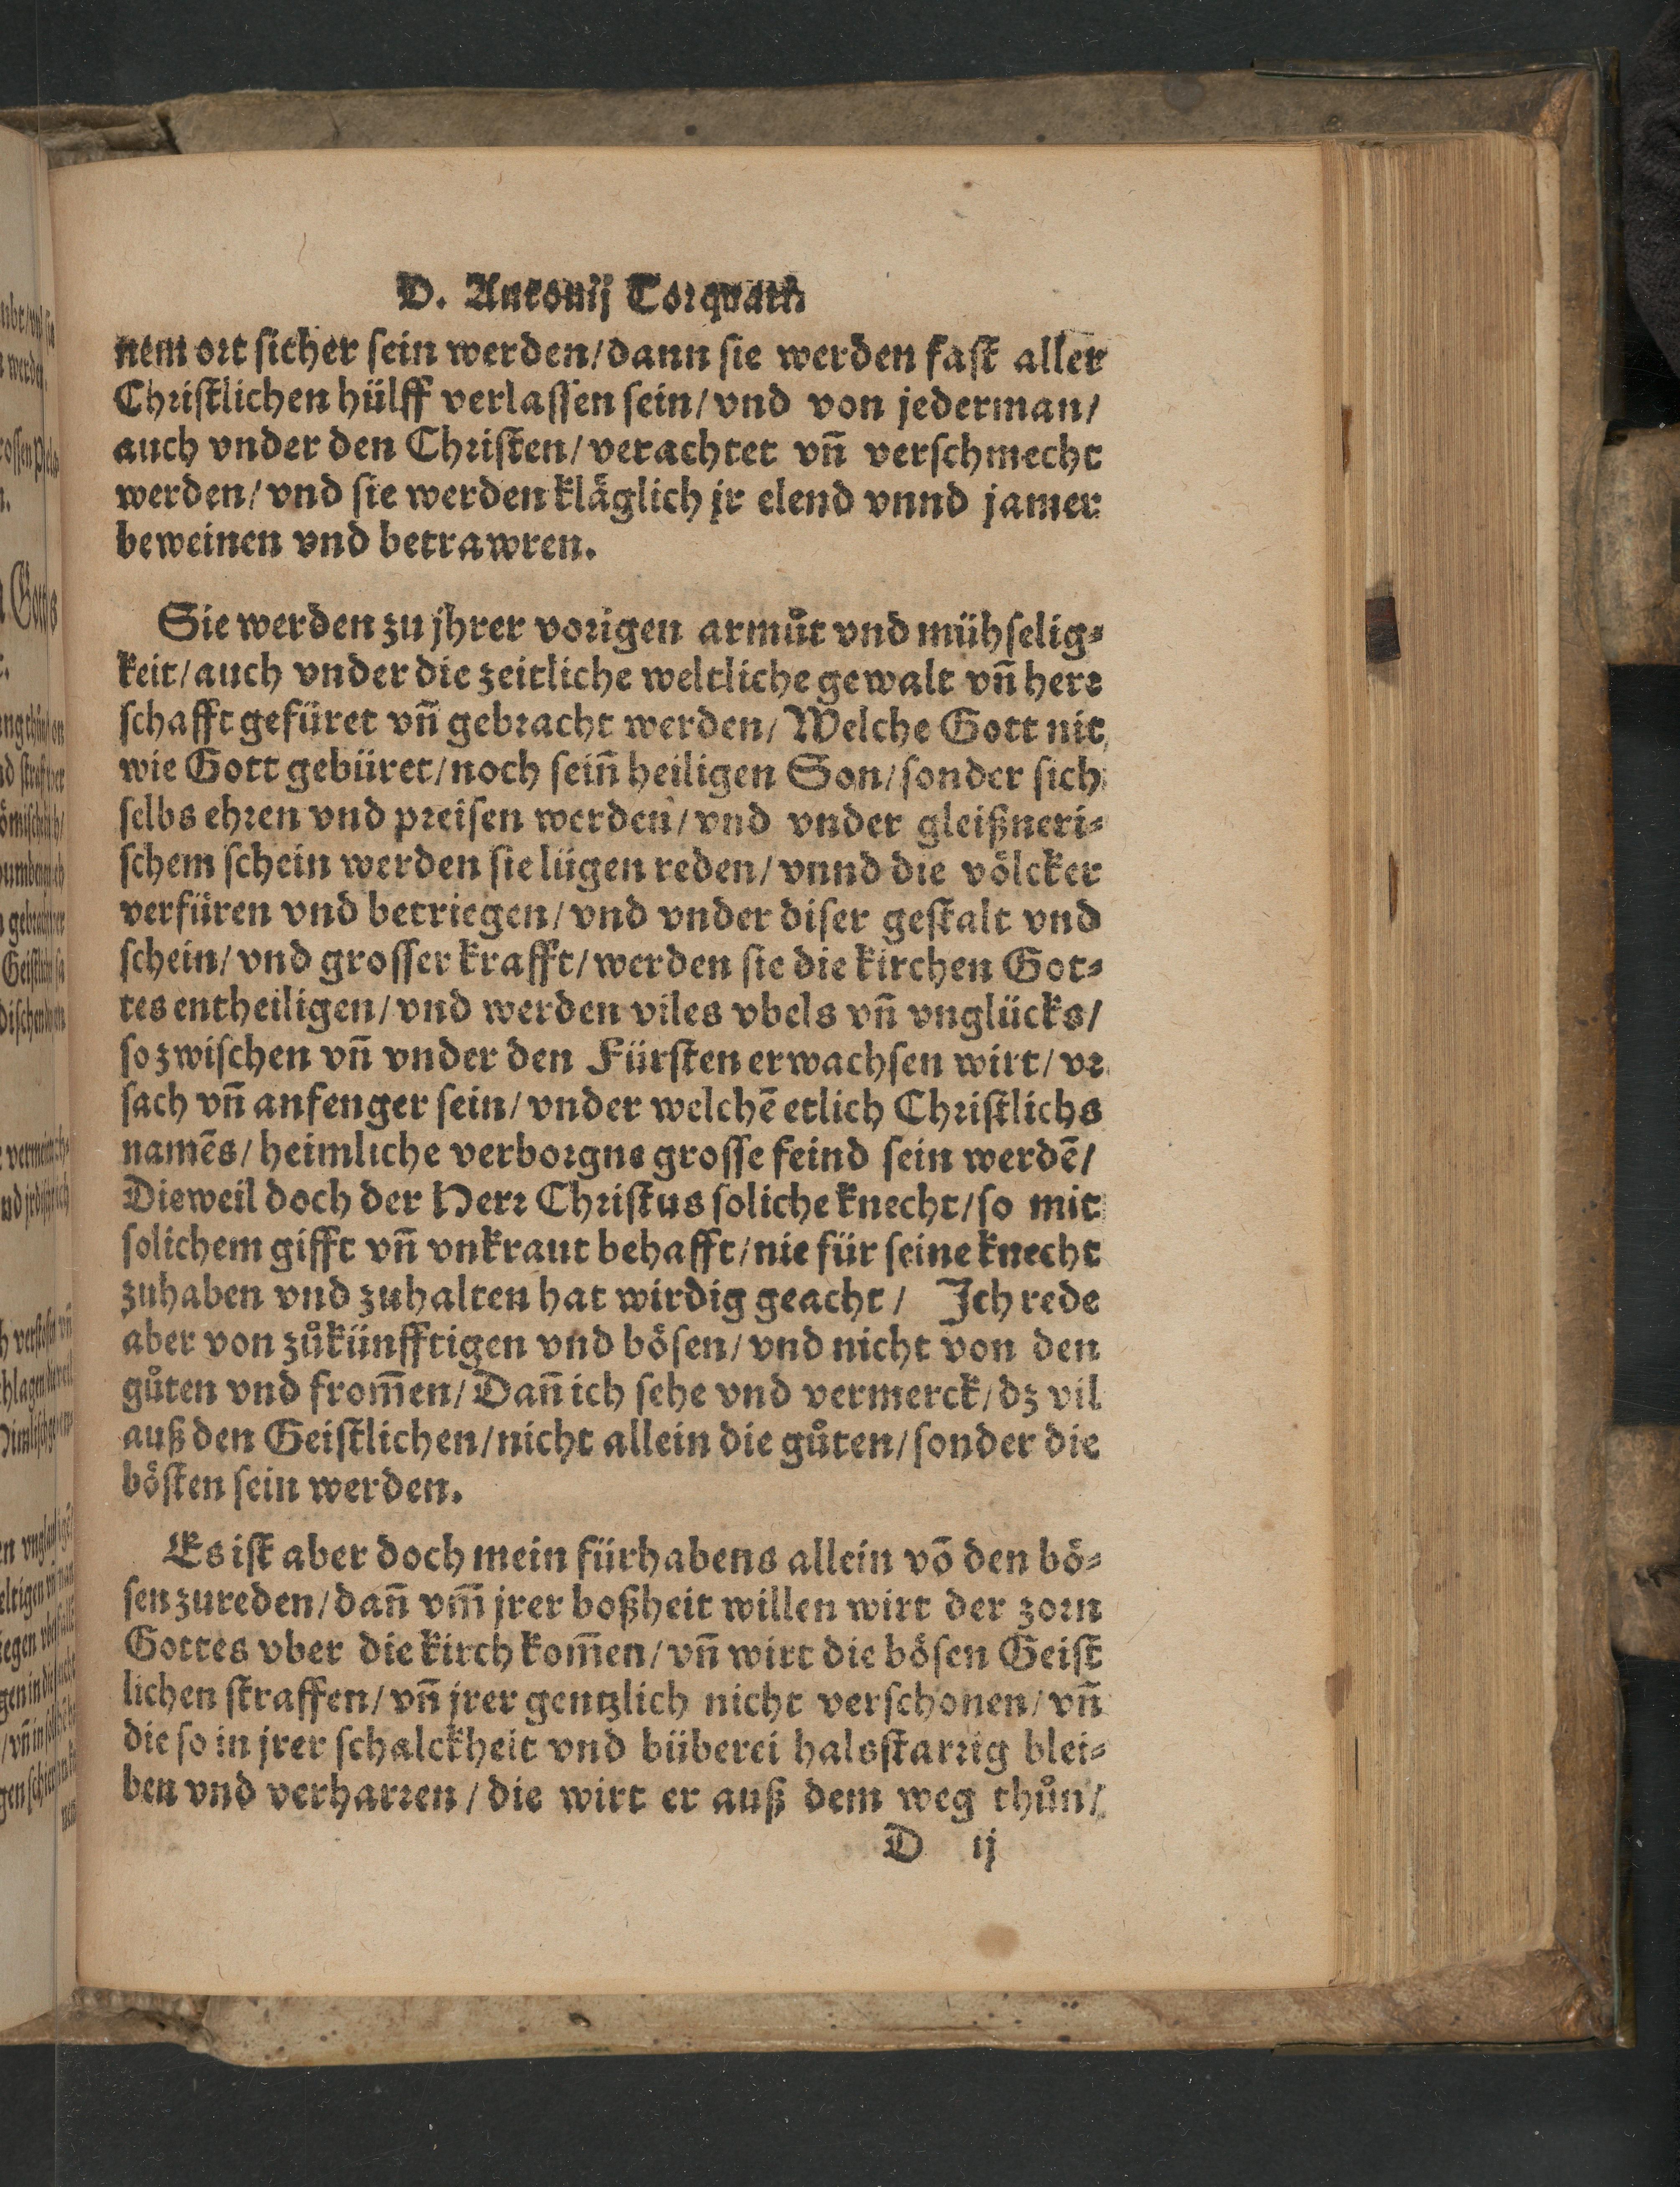 D. Antonij Torquati
nem ort sicher sein werden/dann sie werden fast aller
Christlichen hülff verlassen sein/vnd von jederman/
auch vnder den Christen/verachtet vn̄ verschmecht
werden/vnd sie werden kläglich jr elend vnnd jamer
beweinen vnd betrawren.
Sie werden zu jhrer vorigen armůt vnd mühselig⸗
keit/auch vnder die zeitliche weltliche gewalt vn̄ herr
schafft gefüret vn̄ gebracht werden/Welche Gott nit
wie Gott gebüret/noch sein̄ heiligen Son/sonder sich
selbs ehren vnd preisen werden/vnd vnder gleißneri⸗
schem schein werden sie lügen reden/vnnd die völcker
verfüren vnd betriegen/vnd vnder diser gestalt vnd
schein/vnd grosser krafft/werden sie die kirchen Got⸗
tes entheiligen/vnd werden viles vbels vn̄ vnglücks/
so zwischen vn̄ vnder den Fürsten erwachsen wirt/vr
sach vn̄ anfenger sein/vnder welchē etlich Christlichs
namēs/heimliche verborgne grosse feind sein werdē/
Dieweil doch der Herr Christus soliche knecht/so mit
solichem gifft vn̄ vnkraut behafft/nie für seine knecht
zuhaben vnd zuhalten hat wirdig geacht/ Ich rede
aber von zůkünfftigen vnd bösen/vnd nicht von den
gůten vnd from̄en/Dan̄ ich sehe vnd vermerck/dz vil
auß den Geistlichen/nicht allein die gůten/sonder die
bösten sein werden.
Es ist aber doch mein fürhabens allein vō den bö⸗
sen zureden/dan̄ vm̄ jrer boßheit willen wirt der zorn
Gottes vber die kirch kom̄en/vn̄ wirt die bösen Geist
lichen straffen/vn̄ jrer gentzlich nicht verschonen/vn̄
die so in jrer schalckheit vnd büberei halsstarrig blei⸗
ben vnd verharren/die wirt er auß dem weg thůn/
D ij